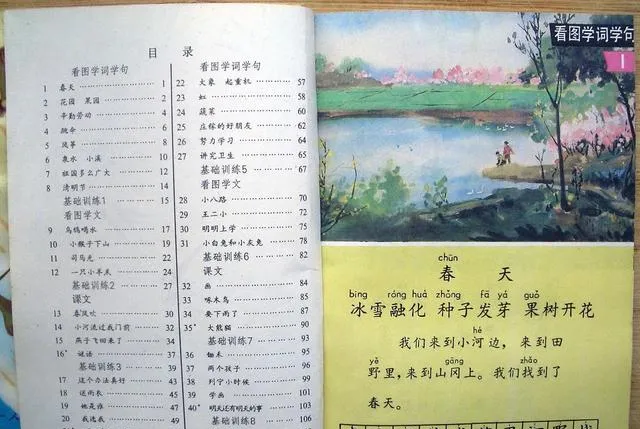 目 录
看图学词学句
1 春天 ………… 1
2 花园 果园 ………… 2
3 辛勤劳动 ………… 4
4 跳伞 ………… 6
5 风筝 ………… 8
6 泉水 小溪 ………… 10
7 祖国多么广大 ………… 12
8 清明节 ………… 14
基础训练1 ………… 15
看图学文
9 乌鸦喝水 ………… 17
10 小猴子下山 ………… 19
11 司马光 ………… 22
12 一只小羊羔 ………… 24
基础训练2 ………… 27
课文
13 春风吹 ………… 30
14 小河流过我门前 ………… 32
15 燕子飞回来了 ………… 34
16* 谜语 ………… 37
基础训练3 ………… 39
17 这个办法真好 ………… 43
18 送雨衣 ………… 45
19 她是谁 ………… 47
20 我选我 ………… 49
22 大象 起重机 ………… 57
23 虹 ………… 58
24 蔬菜 ………… 60
25 庄稼的好朋友 ………… 62
26 努力学习 ………… 64
27 讲究卫生 ………… 65
基础训练5 ………… 67
看图学文
28 小八路 ………… 70
29 王二小 ………… 72
30 明明上学 ………… 75
31 小白兔和小灰兔 ………… 78
基础训练6 ………… 82
课文
32 画 ………… 84
33 啄木鸟 ………… 85
34 要下雨了 ………… 87
35* 大熊猫 ………… 90
基础训练7 ………… 93
36 锄禾 ………… 95
37 两个孩子 ………… 96
38 列宁小时候 ………… 99
39 学画 ………… 101
40* 明天还有明天的事 ………… 103
基础训练8 ………… 106
看图学词学句
1
chūn
春 天
bīng róng huà zhǒng fā yá guǒ
冰雪融化 种子发芽 果树开花
hé
我们来到小河边，来到田
yě gāng zhǎo
野里，来到山冈上。我们找到了
春天。